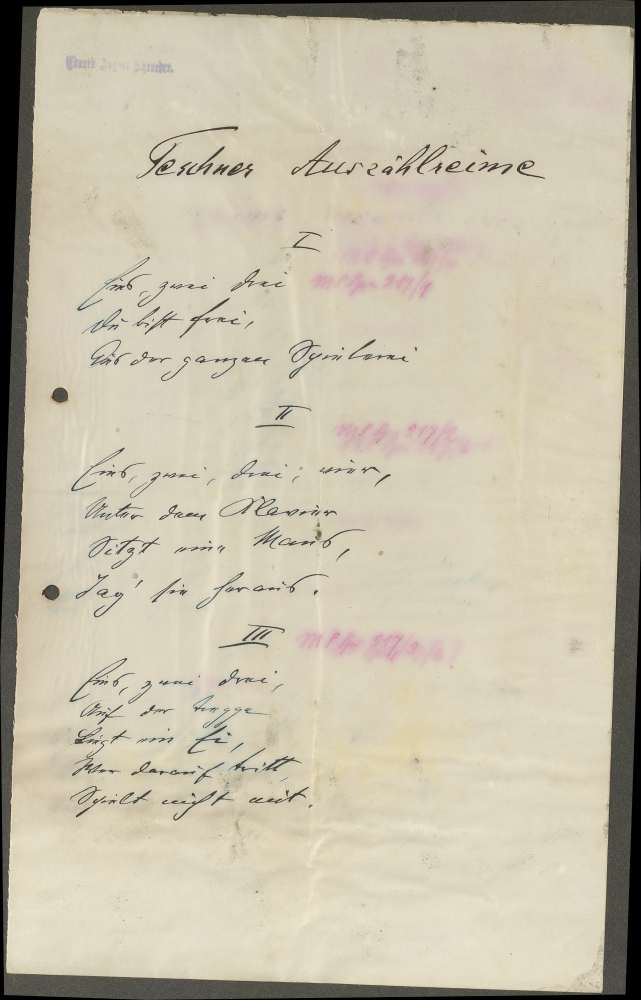 Teschner Auszählreime
I
Eins, zwei drei
Du bist frei,
Aus der ganzen Spielerei
II
Eins, zwei, drei, vier,
Unter dem Klavier
Sitzt eine Maus,
Jag' sie heraus.
III
Eins, zwei drei,
Auf der Treppe
Liegt ein Ei,
Wer darauf tritt
Spielt nicht mit.